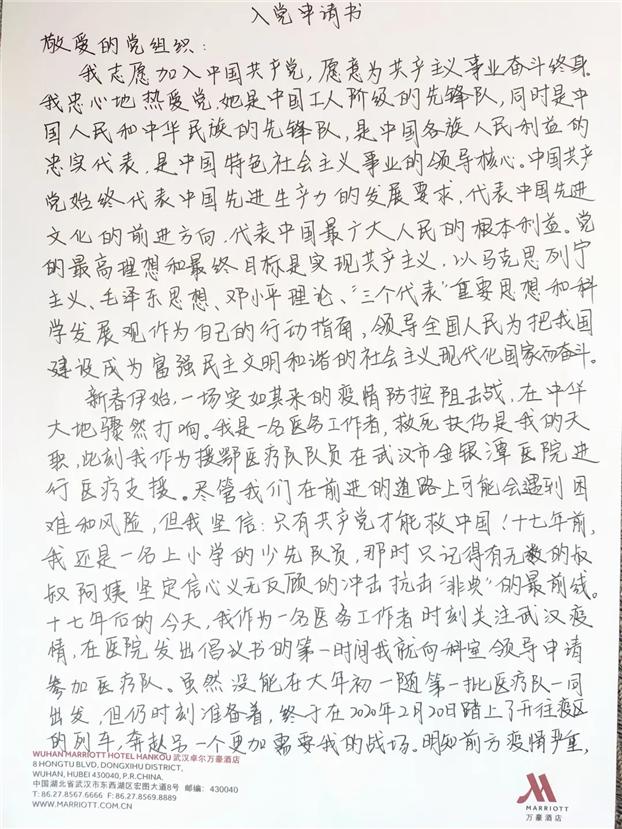 入党申请书
敬爱的党组织：
我志愿加入中国共产党，愿意为共产主义事业奋斗终身。
我忠心地热爱党，她是中国工人阶级的先锋队，同时是中
国人民和中华民族的先锋队，是中国各族人民利益的
忠实代表，是中国特色社会主义事业的领导核心。中国共产
党始终代表中国先进生产力的发展要求，代表中国先进
文化的前进方向，代表中国最广大人民的根本利益。党
的最高理想和最终目标是实现共产主义，以马克思列宁
主义、毛泽东思想、邓小平理论、“三个代表”重要思想和科
学发展观作为自己的行动指南，领导全国人民为把我国
建设成为富强民主文明和谐的社会主义现代化国家而奋斗。
新春伊始，一场突如其来的疫情防控阻击战，在中华
大地骤然打响。我是一名医务工作者，救死扶伤是我的天
职，此刻我作为援鄂医疗队队员在武汉市金银潭医院进
行医疗支援。尽管我们在前进的道路上可能会遇到困
难和风险，但我坚信：只有共产党才能救中国！十七年前，
我还是一名上小学的少先队员，那时只记得有无数的叔
叔阿姨坚定信心义无反顾的冲击抗击“非典”的最前线。
十七年后的今天，我作为一名医务工作者时刻关注武汉疫
情，在医院发出倡议书的第一时间我就向科室领导申请
参加医疗队。虽然没能在大年初一随第一批医疗队一同
出发，但仍时刻准备着，终于在2020年2月20日踏上了开往疫区
的列车，奔赴另一个更加需要我的战场。明知前方疫情严重，
WUHAN MARRIOTT HOTEL HANKOU 武汉卓尔万豪酒店
8 HONGTU BLVD, DONGXIHU DISTRICT,
WUHAN, HUBEI 430040, P.R.CHINA.
中国湖北省武汉市东西湖区宏图大道8号 邮编：430040
T: 86.27.8567.6666 F: 86.27.8569.8889
WWW.MARRIOTT.COM.CN
万豪酒店